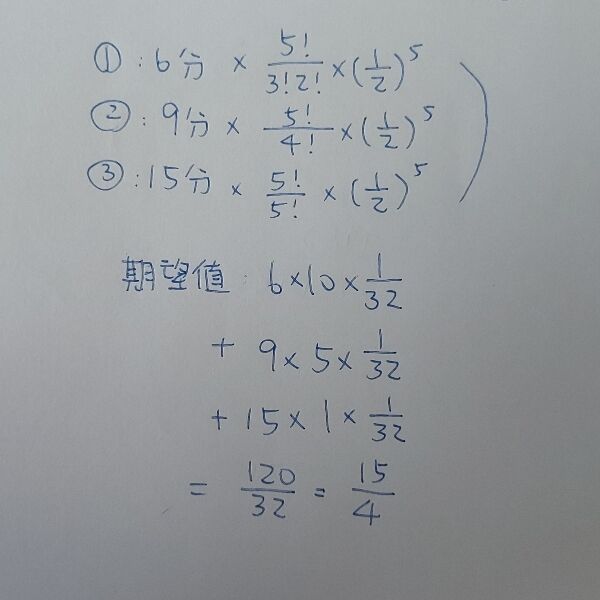 ① : 6分 × 5!/3!2! × (1/2)^5
② : 9分 × 5!/4! × (1/2)^5
③ : 15分 × 5!/5! × (1/2)^5
期望值: 6×10×1/32
+ 9×5×1/32
+ 15×1×1/32
= 120/32 = 15/4